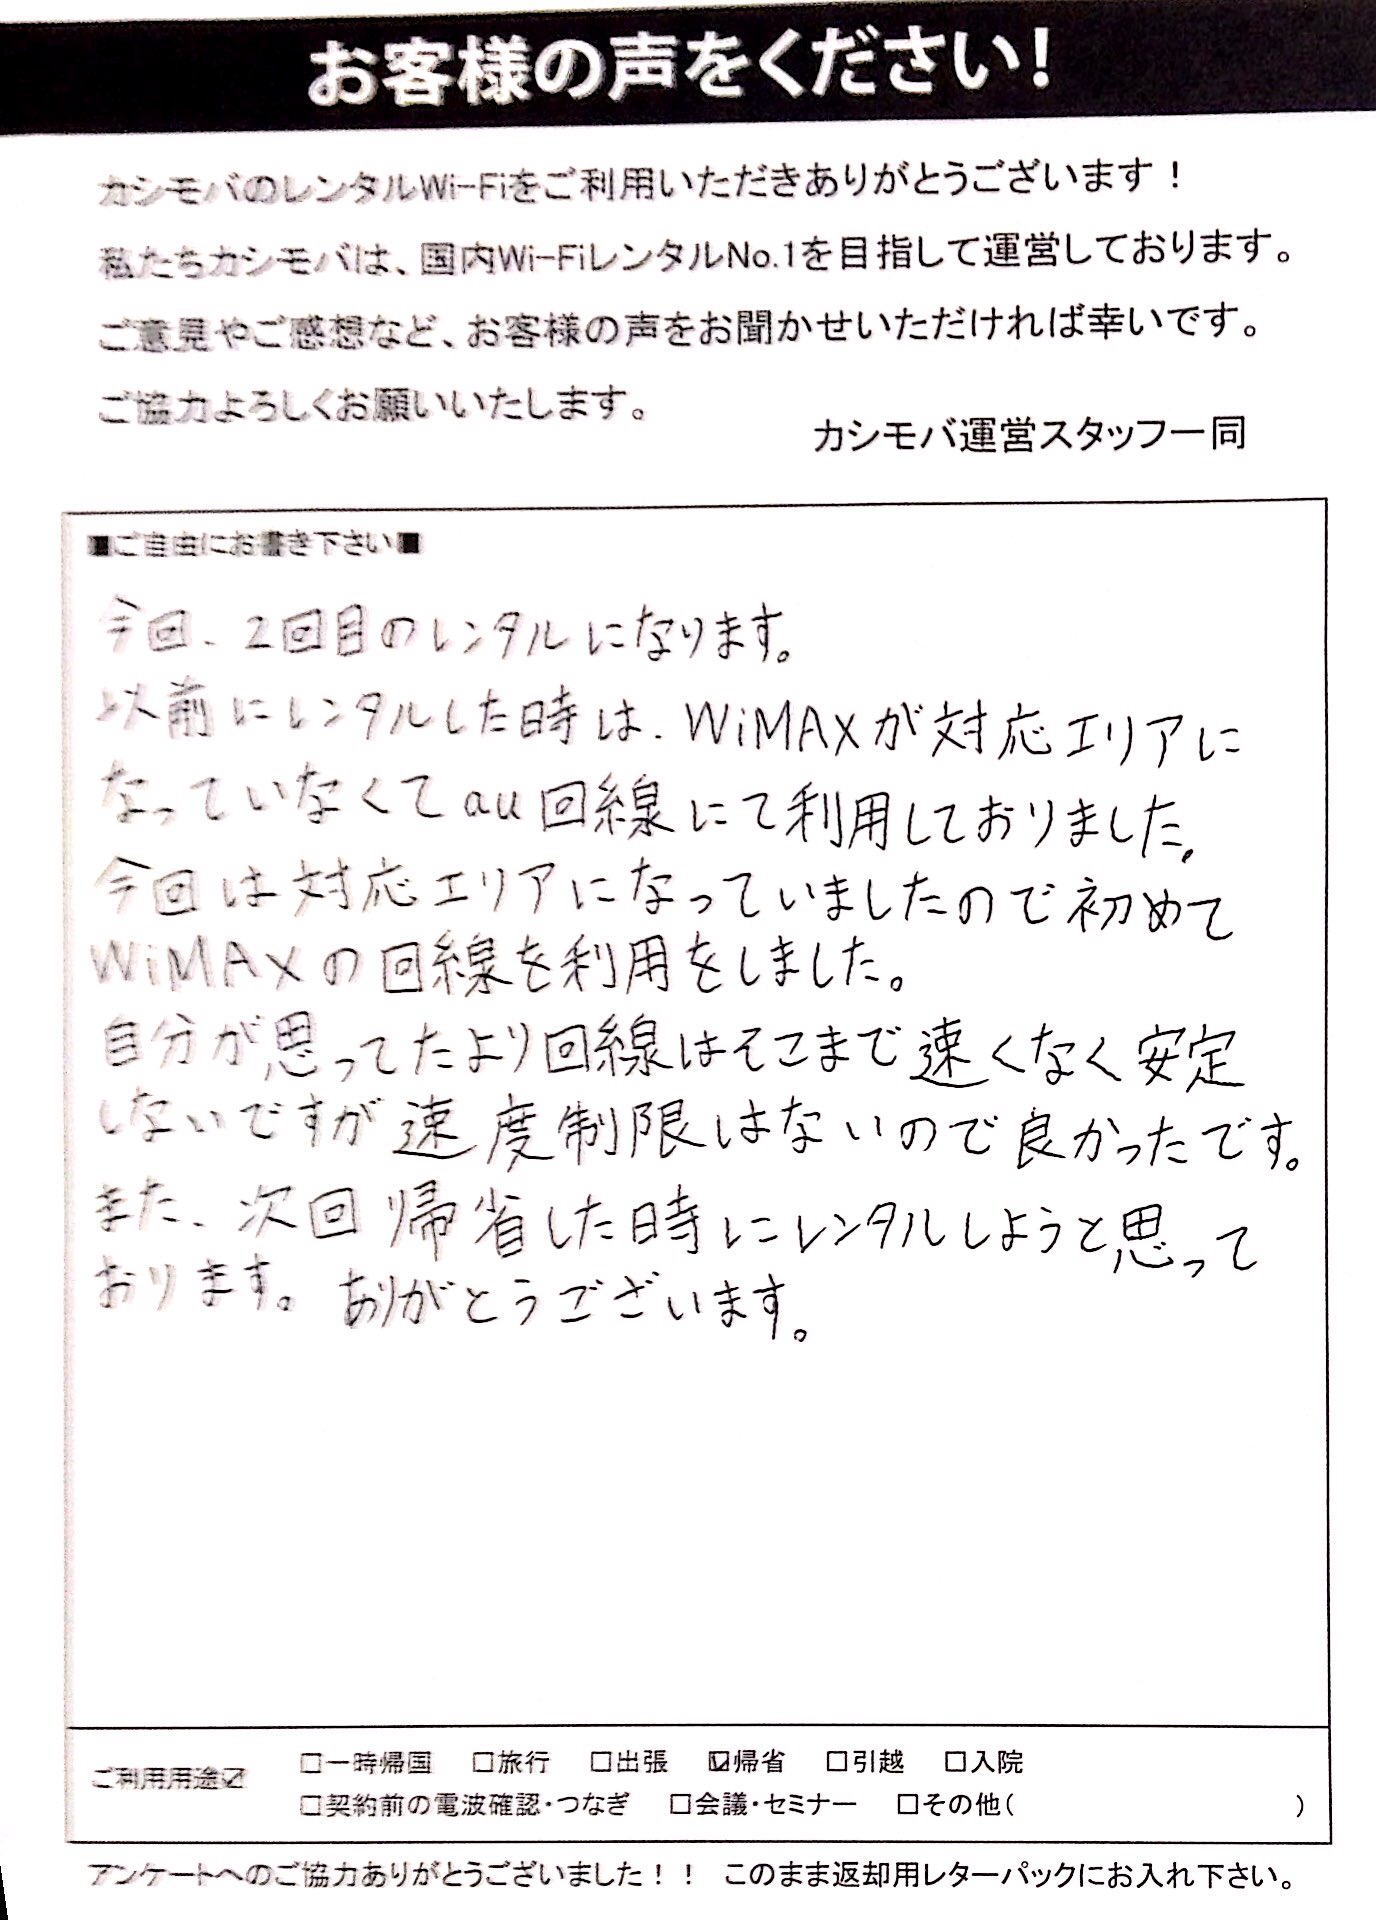 お客様の声をください!
カシモバのレンタルWi-Fiをご利用いただきありがとうございます！
私たちカシモバは、国内Wi-FiレンタルNo.1を目指して運営しております。
ご意見やご感想など、お客様の声をお聞かせいただければ幸いです。
ご協力よろしくお願いいたします。
カシモバ運営スタッフ一同
■ご自由にお書き下さい■
今回、2回目のレンタルになります。
以前にレンタルした時は、WiMAXが対応エリアに
なっていなくてau回線にて利用しておりました。
今回は対応エリアになっていましたので初めて
WiMAXの回線を利用をしました。
自分が思ってたより回線はそこまで速くなく安定
しないですが速度制限はないので良かったです。
また、次回帰省した時にレンタルしようと思って
おります。ありがとうございます。
ご利用用途☑ □一時帰国 □旅行 □出張 ☑帰省 □引越 □入院
□契約前の電波確認・つなぎ □会議・セミナー □その他( )
アンケートへのご協力ありがとうございました！！ このまま返却用レターパックにお入れ下さい。